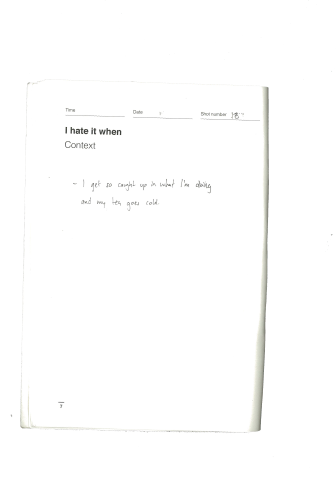 Time Date Shot number 18
I hate it when
Context
- I get so caught up in what I'm doing
and my tea goes cold
7